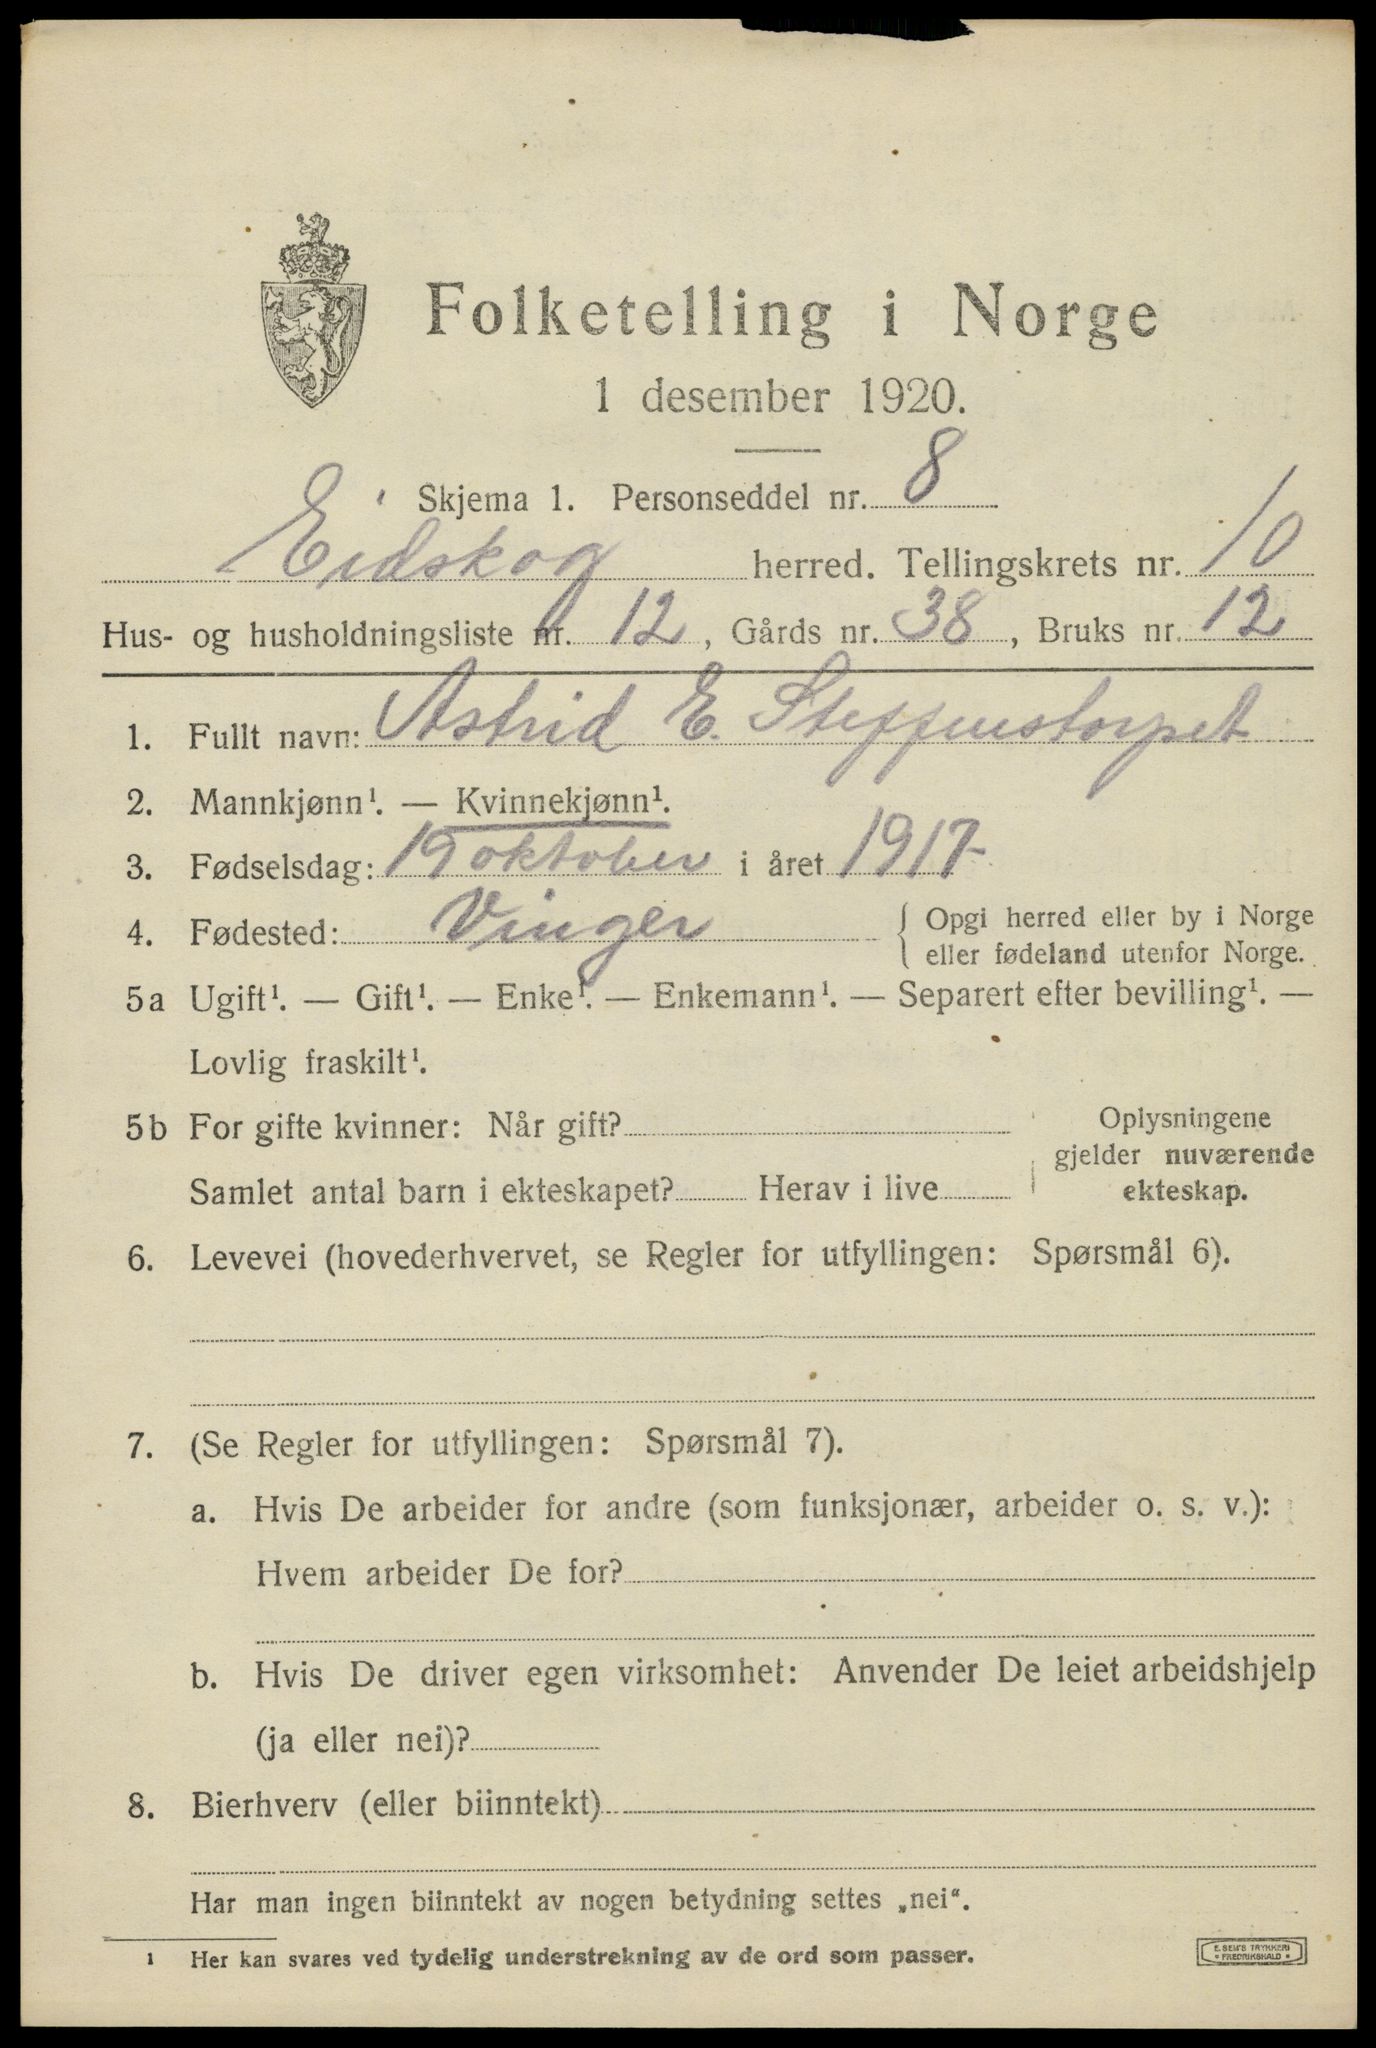 Folketelling i Norge
1 desember 1920.
Skjema 1. Personseddel nr. 8
Eidskog herred. Tellingskrets nr. 10
Hus- og husholdningsliste nr. 12, Gårds nr. 38, Bruks nr. 12
1. Fullt navn: Astrid E. Steffenstorpet
2. Mannkjønn¹. — Kvinnekjønn¹.
3. Fødselsdag: 19 oktober i året 1917
4. Fødested: Vinger { Opgi herred eller by i Norge
eller fødeland utenfor Norge.
5a Ugift¹. — Gift¹. — Enke¹. — Enkemann¹. — Separert efter bevilling¹. —
Lovlig fraskilt¹.
5b For gifte kvinner: Når gift?
Samlet antal barn i ekteskapet? Herav i live
Oplysningene
gjelder nuværende
ekteskap.
6. Levevei (hovederhvervet, se Regler for utfyllingen: Spørsmål 6).
7. (Se Regler for utfyllingen: Spørsmål 7).
a. Hvis De arbeider for andre (som funksjonær, arbeider o. s. v.):
Hvem arbeider De for?
b. Hvis De driver egen virksomhet: Anvender De leiet arbeidshjelp
(ja eller nei)?
8. Bierhverv (eller biinntekt)
Har man ingen biinntekt av nogen betydning settes „nei“.
¹ Her kan svares ved tydelig understrekning av de ord som passer.
E. SEM'S TRYKKERI
• FREDRIKSHALD •